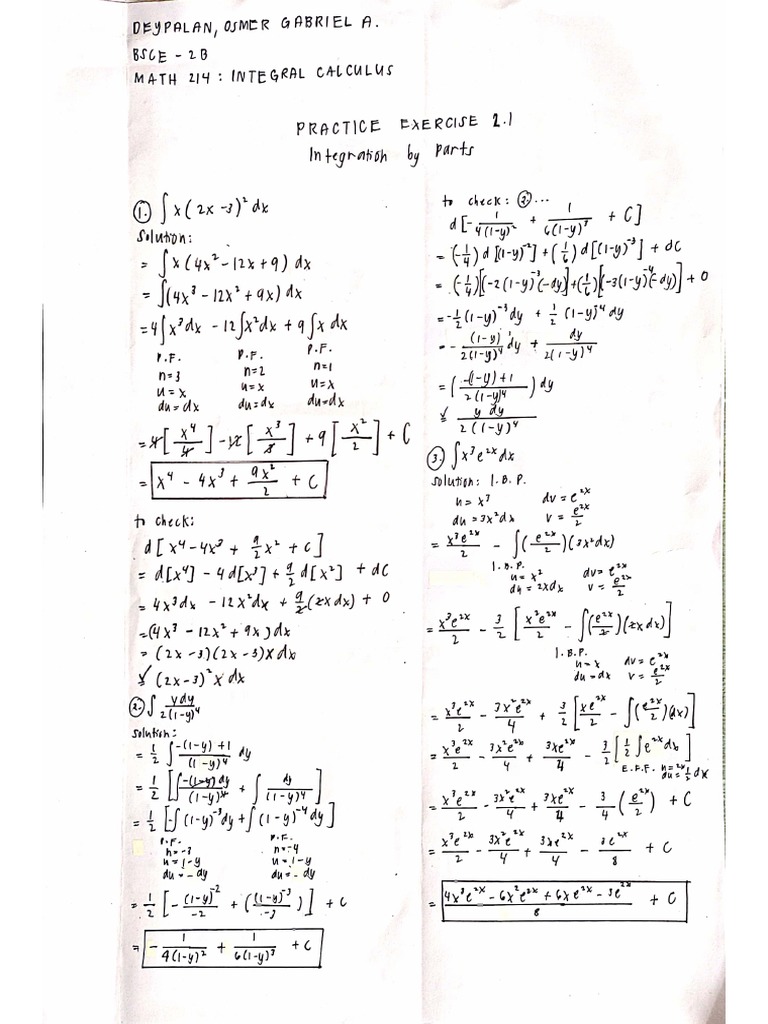 DEYPALAN, OSMER GABRIEL A.
BSCE - 2B
MATH 214 : INTEGRAL CALCULUS
PRACTICE EXERCISE 2.1
Integration by parts
1. ∫ x (2x - 3)² dx
solution:
= ∫ x (4x² - 12x + 9) dx
= ∫ (4x³ - 12x² + 9x) dx
= 4 ∫ x³ dx - 12 ∫ x² dx + 9 ∫ x dx
P.F. P.F. P.F.
n=3 n=2 n=1
u=x u=x u=x
du=dx du=dx du=dx
= 4 [x⁴/4] - 12 [x³/3] + 9 [x²/2] + C
= x⁴ - 4x³ + 9x²/2 + C
to check:
d [x⁴ - 4x³ + 9/2 x² + C]
= d[x⁴] - 4d[x³] + 9/2 d[x²] + dC
= 4x³dx - 12x²dx + 9/2 (2x dx) + 0
= (4x³ - 12x² + 9x) dx
= (2x - 3)(2x - 3) x dx
✓ (2x - 3)² x dx
2. ∫ y dy / 2(1-y)⁴
solution:
= 1/2 ∫ -(1-y) + 1 / (1-y)⁴ dy
= 1/2 [∫ -(1-y) dy / (1-y)⁴ + ∫ dy / (1-y)⁴]
= 1/2 [-∫ (1-y)⁻³ dy + ∫ (1-y)⁻⁴ dy]
P.F. P.F.
n=-3 n=-4
u=1-y u=1-y
du=-dy du=-dy
= 1/2 [- (1-y)⁻²/-2 + ((1-y)⁻³/-3)] + C
= - 1/4(1-y)² + 1/6(1-y)³ + C
to check: 2. ...
d [- 1/4(1-y)² + 1/6(1-y)³ + C]
= (-1/4) d [(1-y)⁻²] + (1/6) d [(1-y)⁻³] + dC
= (-1/4)[(-2(1-y)⁻³(-dy)] + (1/6)[-3(1-y)⁻⁴(-dy)] + 0
= -1/2 (1-y)⁻³ dy + 1/2 (1-y)⁻⁴ dy
= - (1-y)/2(1-y)⁴ dy + dy/2(1-y)⁴
= (-(1-y)+1 / 2(1-y)⁴) dy
✓ y dy / 2(1-y)⁴
3. ∫ x³ e²ˣ dx
solution: I.B.P.
u=x³ dv=e²ˣ
du=3x²dx v=e²ˣ/2
= x³e²ˣ/2 - ∫ (e²ˣ/2)(3x²dx)
I.B.P.
u=x² dv=e²ˣ
du=2xdx v=e²ˣ/2
= x³e²ˣ/2 - 3/2 [x²e²ˣ/2 - ∫(e²ˣ/2)(2x dx)]
I.B.P.
u=x dv=e²ˣ
du=dx v=e²ˣ/2
= x³e²ˣ/2 - 3x²e²ˣ/4 + 3/2 [xe²ˣ/2 - ∫(e²ˣ/2)(dx)]
= x³e²ˣ/2 - 3x²e²ˣ/4 + 3xe²ˣ/4 - 3/2 [1/2 ∫ e²ˣ dx]
E.F.F. u=2x
du=1/2 dx
= x³e²ˣ/2 - 3x²e²ˣ/4 + 3xe²ˣ/4 - 3/4 (e²ˣ/2) + C
= x³e²ˣ/2 - 3x²e²ˣ/4 + 3xe²ˣ/4 - 3e²ˣ/8 + C
= 4x³e²ˣ - 6x²e²ˣ + 6xe²ˣ - 3e²ˣ / 8 + C